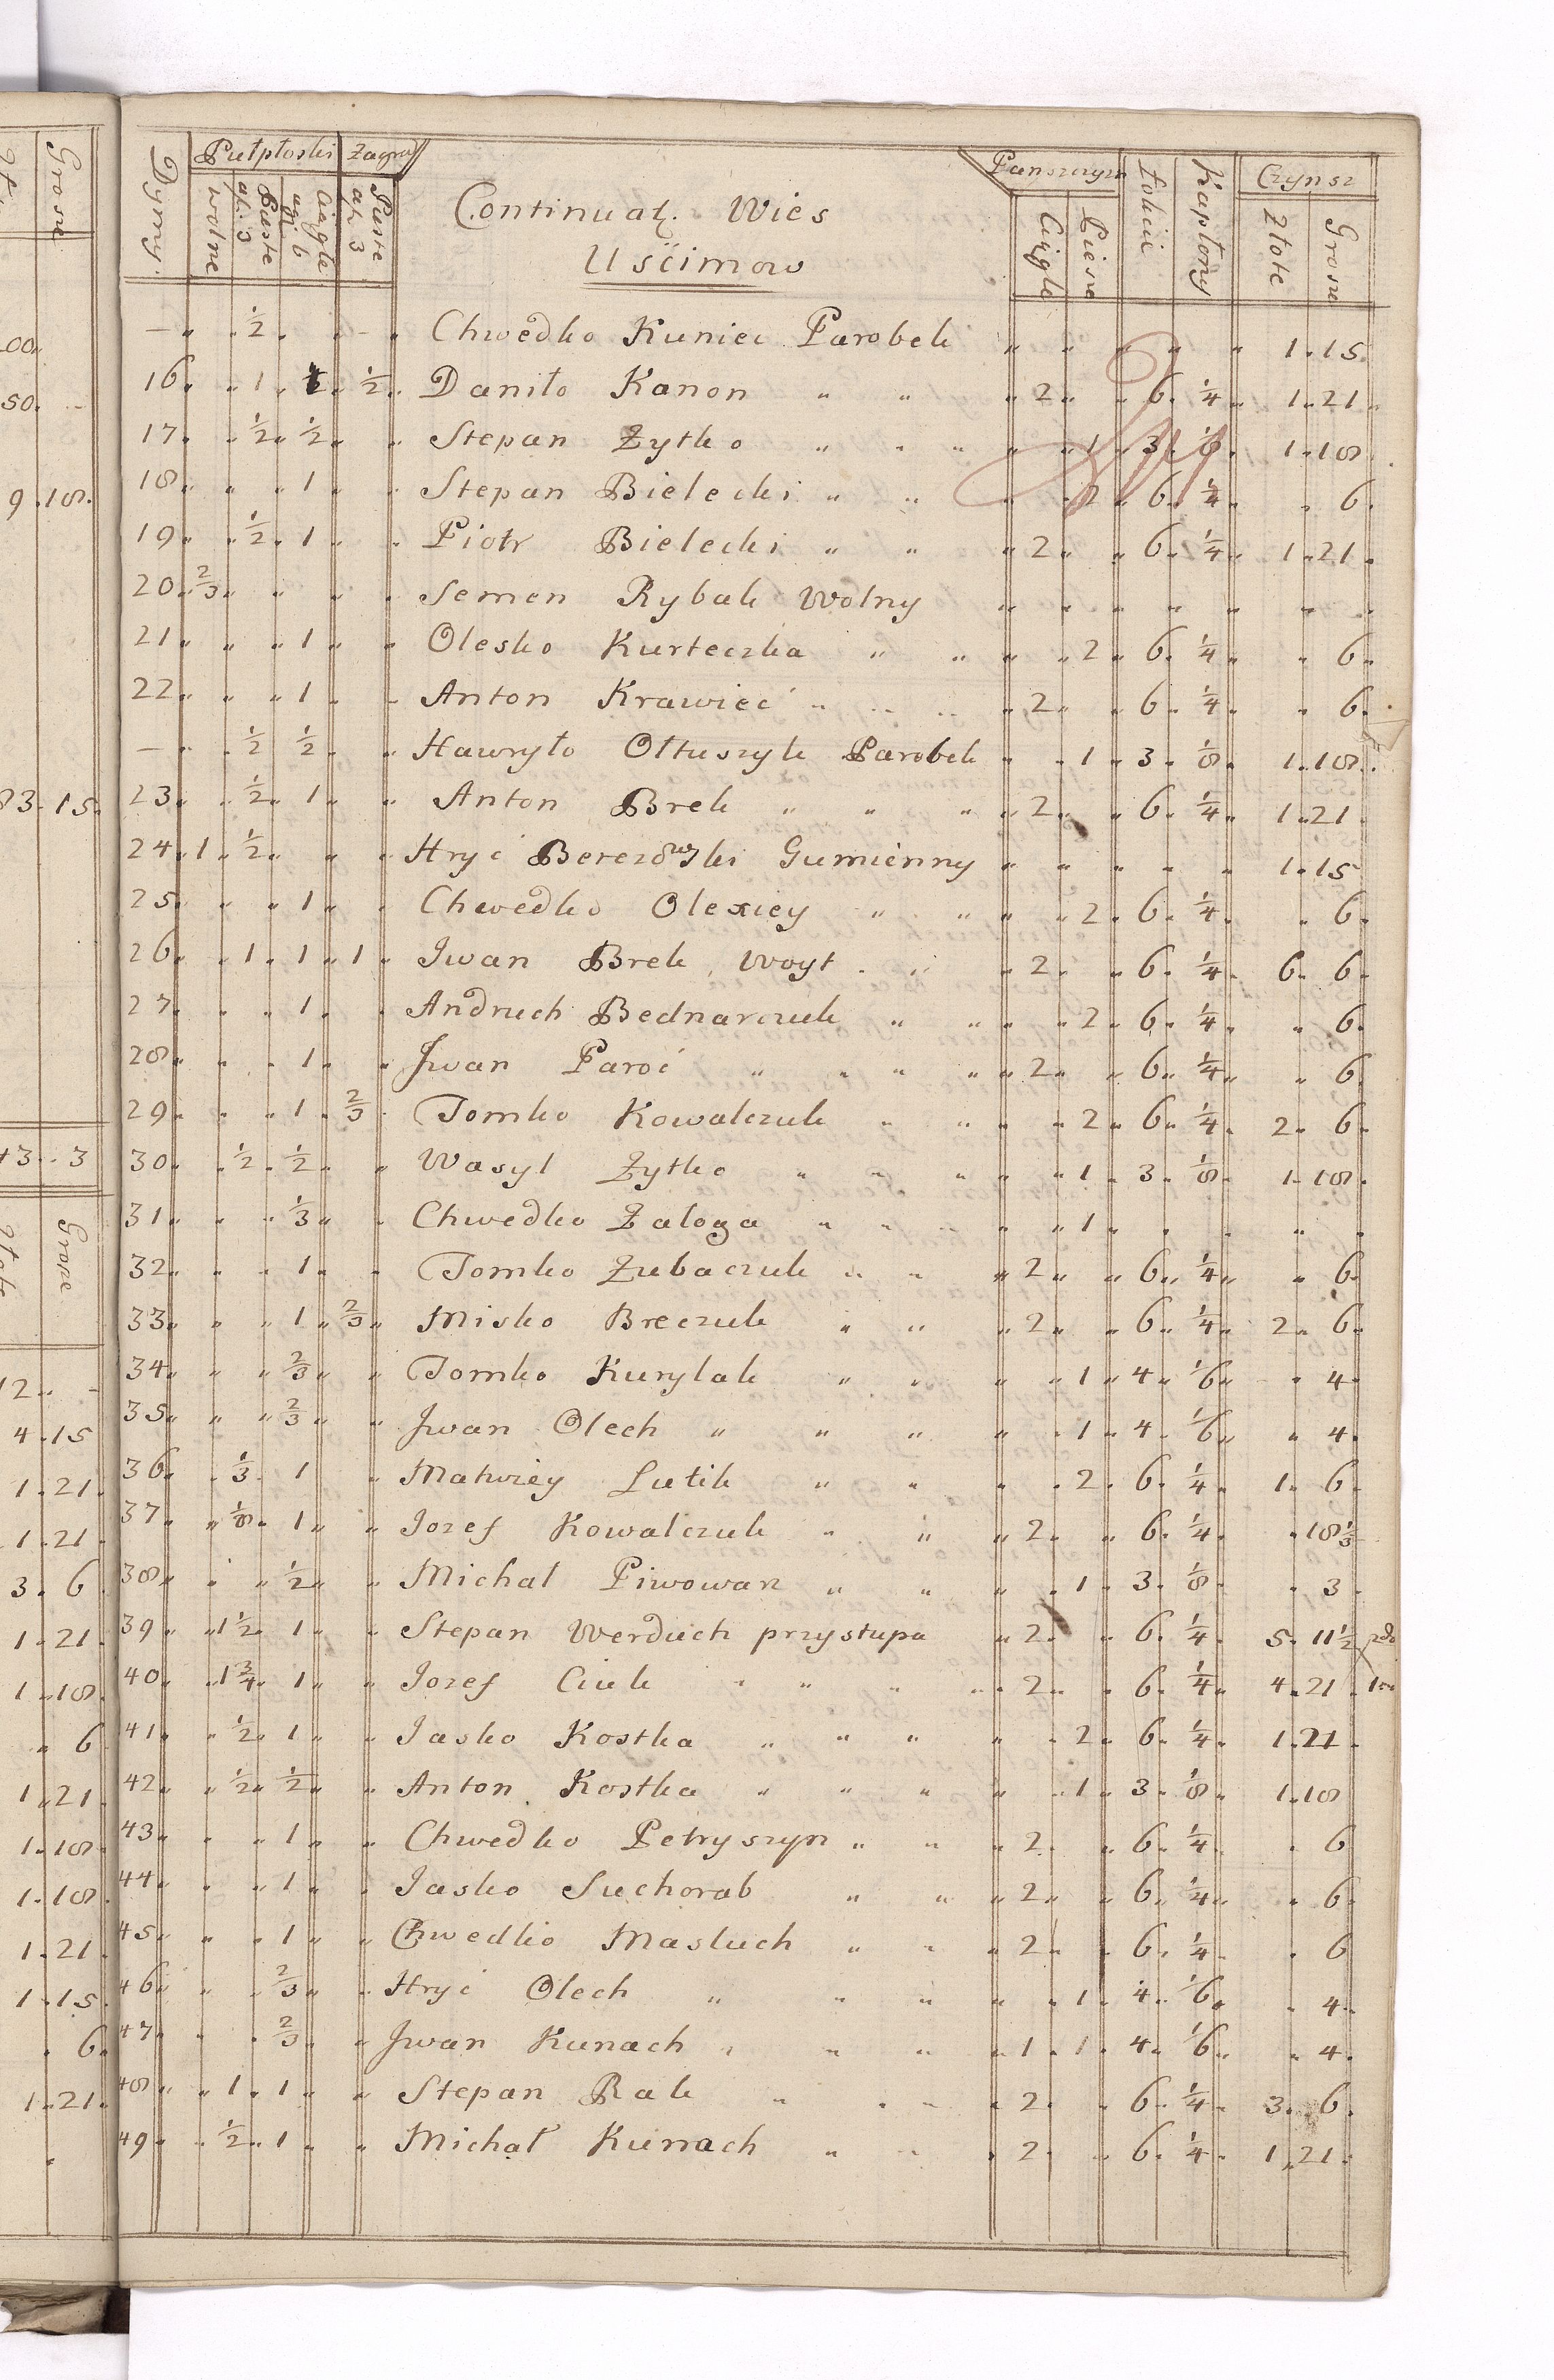 Dymy. Pułpłoski Zagrod Panszczyzn Łokcie Kapłony Czynsz
wolne Puste a fl: 3 Ciągłe a g: 6 Puste a fl. 3 Continuat. Wies Ciągłe Piesze Złote Grosze
Uścimow
— „ „ 1/2 „ „ - „ Chwedko Kuniec Parobek „ „ „ „ „ 1 „ 15
16 „ „ 1 „ „ 1/2 „ Daniło Kanon „ „ „ 2 „ „ 6 „ 1/4 „ 1 „ 21
17 „ „ 1/2 „ 1/2 „ „ Stepan Żytko „ „ „ „ „ 1 „ 3 „ 1/8 „ 1 „ 18
18 „ „ „ 1 „ „ Stepan Bielecki „ „ „ „ 2 „ 6 „ 1/4 „ „ 6
19 „ „ 1/2 „ 1 „ „ Piotr Bielecki „ „ „ 2 „ „ 6 „ 1/4 „ 1 „ 21
20 „ 2/3 „ „ „ „ Semen Rybak Wolny „ „ „ „ „ „ „
21 „ „ „ 1 „ „ Olesko Kurteczka „ „ „ „ 2 „ 6 „ 1/4 „ „ 6
22 „ „ „ 1 „ „ Anton Krawiec „ „ „ „ 2 „ „ 6 „ 1/4 „ „ 6
— „ „ 1/2 1/2 „ „ Hawryło Ołtuszyk Parobek „ „ 1 „ 3 „ 1/8 „ 1 „ 18
23 „ „ 1/2 „ 1 „ „ Anton Brek „ „ „ „ 2 „ „ 6 „ 1/4 „ 1 „ 21
24 „ 1 „ 1/2 „ „ „ Hryć Berezowski Gumienny „ „ „ „ „ 1 „ 15
25 „ „ „ 1 „ „ Chwedko Olexiey „ „ „ „ 2 „ 6 „ 1/4 „ „ 6
26 „ „ 1 „ 1 „ 1 „ Iwan Brek, Woyt „ „ „ 2 „ „ 6 „ 1/4 „ 6 „ 6
27 „ „ „ 1 „ „ Andruch Bednarczuk „ „ „ „ 2 „ 6 „ 1/4 „ „ 6
28 „ „ „ 1 „ „ Iwan Paroć „ „ „ „ „ 2 „ „ 6 „ 1/4 „ „ 6
29 „ „ „ 1 „ 2/3 „ Tomko Kowalczuk „ „ „ „ 2 „ 6 „ 1/4 „ 2 „ 6
30 „ „ 1/2 „ 1/2 „ „ Wasyl Żytko „ „ „ „ „ 1 „ 3 „ 1/8 „ 1 „ 18
31 „ „ „ 1/3 „ „ Chwedko Załoga „ „ „ „ „ 1 „ „ „ „ „
32 „ „ „ 1 „ „ Tomko Zubaczuk „ „ „ 2 „ „ 6 „ 1/4 „ „ 6
33 „ „ „ 1 „ 2/3 „ Misko Breczuk „ „ „ 2 „ „ 6 „ 1/4 „ 2 „ 6
34 „ „ „ 2/3 „ „ Tomko Kurylak „ „ „ „ 1 „ 4 „ 1/6 „ „ 4
35 „ „ „ 2/3 „ „ Iwan Olech „ „ „ „ „ 1 „ 4 „ 1/6 „ „ 4
36 „ „ 1/3 „ 1 „ Matwiey Lutik „ „ „ „ 2 „ 6 „ 1/4 „ 1 „ 6
37 „ „ 1/8 „ 1 „ „ Iozef Kowalczuk „ „ „ 2 „ „ 6 „ 1/4 „ „ 18 1/3
38 „ „ „ 1/2 „ „ Michał Piwowarz „ „ „ „ 1 „ 3 „ 1/8 „ „ 3
39 „ „ 1 1/2 „ 1 „ „ Stepan Werduch przystupa „ 2 „ „ 6 „ 1/4 „ 5 „ 11 1/2
40 „ „ 1 3/4 „ 1 „ „ Iozef Ciuk „ „ „ „ 2 „ „ 6 „ 1/4 „ 4 „ 21
41 „ „ 1/2 „ 1 „ „ Iasko Kostka „ „ „ „ „ 2 „ 6 „ 1/4 „ 1 „ 21
42 „ „ 1/2 „ 1/2 „ „ Anton Kostka „ „ „ „ „ 1 „ 3 „ 1/8 „ 1 „ 18
43 „ „ „ 1 „ „ Chwedko Petryszyn „ „ „ 2 „ „ 6 „ 1/4 „ „ 6
44 „ „ „ 1 „ „ Iasko Suchorab „ „ „ 2 „ „ 6 „ 1/4 „ „ 6
45 „ „ „ 1 „ „ Chwedko Masluch „ „ „ 2 „ „ 6 „ 1/4 „ „ 6
46 „ „ „ 2/3 „ „ Hryć Olech „ „ „ „ „ 1 „ 4 „ 1/6 „ „ 4
47 „ „ „ 2/3 „ „ Iwan Kunach „ „ „ „ 1 „ 1 „ 4 „ 1/6 „ „ 4
48 „ „ 1 „ 1 „ „ Stepan Rak „ „ „ „ 2 „ „ 6 „ 1/4 „ 3 „ 6
49 „ „ 1/2 „ 1 „ „ Michał Kunach „ „ „ 2 „ „ 6 „ 1/4 „ 1 „ 21
Grosze
00
50
9 „ 18
83 „ 15
43 „ 3
Złote Grosze
12
4 „ 15
1 „ 21
1 „ 21
3 „ 6
1 „ 21
1 „ 18
„ 6
1 „ 21
1 „ 18
1 „ 18
1 „ 21
1 „ 15
„ 6
1 „ 21